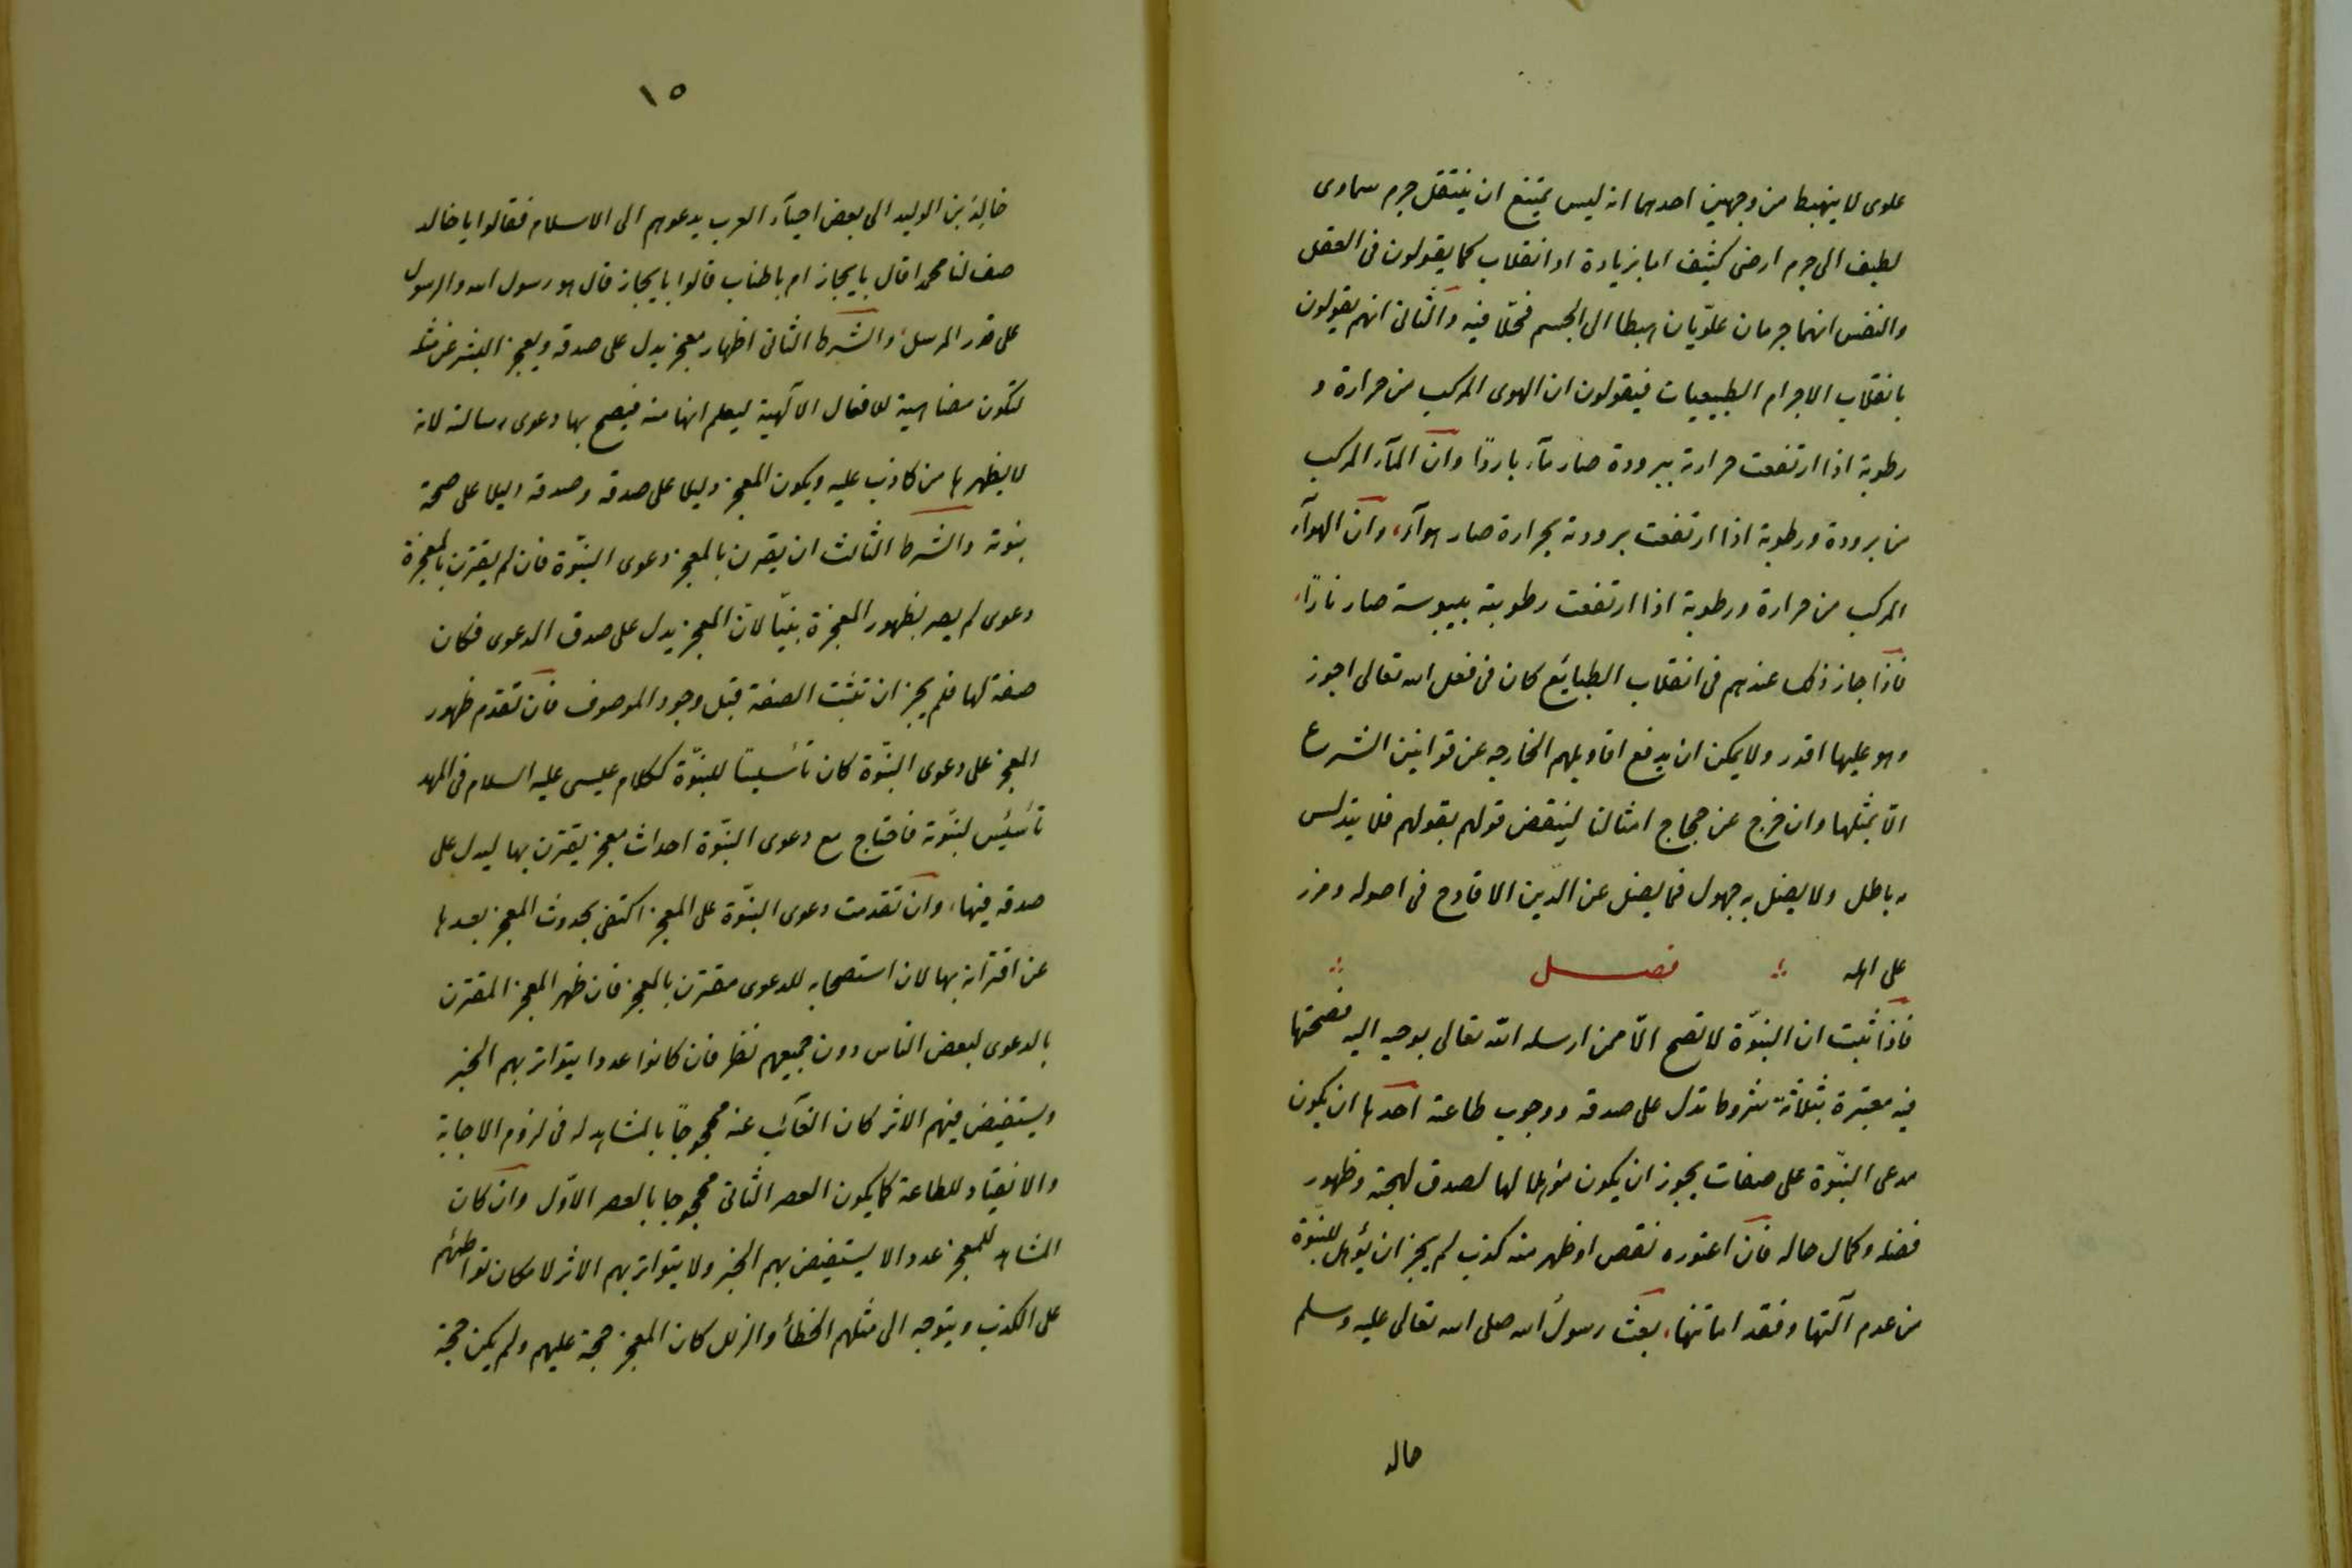 علوى لا ينهبط من وجهين احدهما انه ليس يمتنع ان ينتقل جرم سماوى
لطيف الى جرم ارضى كثيف اما بزيادة او انقلاب كما يقولون فى العقل
والنفس انهما جرمان علويّان اهبطا الى الجسم فحلّا فيه والثانى انهم يقولون
بانقلاب الاجرام الطبيعيات فيقولون ان الهوى المركب من حرارة و
رطوبة اذا ارتفعت حرارته ببرودة صار مآء باردًا وان المآء المركب
من برودة ورطوبة اذا ارتفعت برودته بحرارة صار هوآء، وان الهوآء
المركب من حرارة ورطوبة اذا ارتفعت رطوبته بيبوسة صار نارًا،
فاذا جاز ذلك عندهم فى انقلاب الطبايع كان فى فعل الله تعالى اجوز
وهو عليها اقدر ولا يمكن ان يدفع اقاويلهم الخارجه عن قوانين الشرع
الّا بمثلها وان خرج عن حجاج امثالنا لينقض قولهم بقولهم فلا يتدلس
به باطل ولا يضل به جهول فما يضل عن الدّين الا قادح فى اصوله ومزر
على اهله فصل
فاذا ثبت ان النبوّة لا تصح الّا ممن ارسله الله تعالى بوحيه اليه فصحتها
فيه معتبرة بثلثة شروط تدل على صدقه ووجوب طاعته احدها ان يكون
مدعى النبوّة على صفات يجوز ان يكون مؤهلا لها لصدق لهجته وظهور
فضله وكمال حاله فان اعتوره نقص او ظهر منه كذب لم يجز ان يؤهل للنبوّة
من عدم آلتها وفقد امانتها، بعث رسول الله صلى الله تعالى عليه وسلم
خالد
١٥
خالد بن الوليد الى بعض احيآء العرب يدعوهم الى الاسلام فقالوا يا خالد
صف لنا محمدا قال بايجاز ام باطناب قالوا بايجاز قال هو رسول الله والرسول
على قدر المرسل، والشرط الثانى اظهار معجز يدل على صدقه ويعجز البشر عن مثله
لتكون مضاهية للافعال الآلهية ليعلم انها منه فيصح بها دعوى رسالته لانه
لا يظهرها من كاذب عليه ويكون المعجز دليلا على صدقه وصدقه دليلا على صحة
نبوته والشرط الثالث ان يقرن بالمعجز دعوى النبّوة فان لم يقترن بالمعجزة
دعوى لم يصر بظهور المعجزة نبيّا لان المعجز يدل على صدق الدعوى فكان
صفة لها فلم يجز ان تثبت الصفة قبل وجود الموصوف فان تقدم ظهور
المعجز على دعوى النبّوة كان تأسيسًا للنبّوة ككلام عيسى عليه السلام فى المهد
تأسيس لنبّوته فاحتاج مع دعوى النبّوة احداث معجز يقترن بها ليدل على
صدقه فيها، وان تقدمت دعوى النبّوة على المعجز اكتفى بحدوث المعجز بعدها
عن اقترانه بها لان استصحابه للدعوى مقترن بالمعجز فان ظهر المعجز المقترن
بالدعوى لبعض الناس دون جميعهم نظر فان كانوا عددا يتواتر بهم الخبر
ويستفيض فيهم الاثر كان الغآئب عنه محجوجًا بالمشاهد له فى لزوم الاجابة
والانقياد للطاعة كما يكون العصر الثانى محجوجا بالعصر الاوّل وان كان
المشاهد للمعجز عددا لا يستفيض بهم الخبر ولا يتواتر بهم الاثر لامكان تواطئهم
على الكذب ويتوجه الى مثلهم الخطأ والزلل كان المعجز حجة عليهم ولم يكن حجة